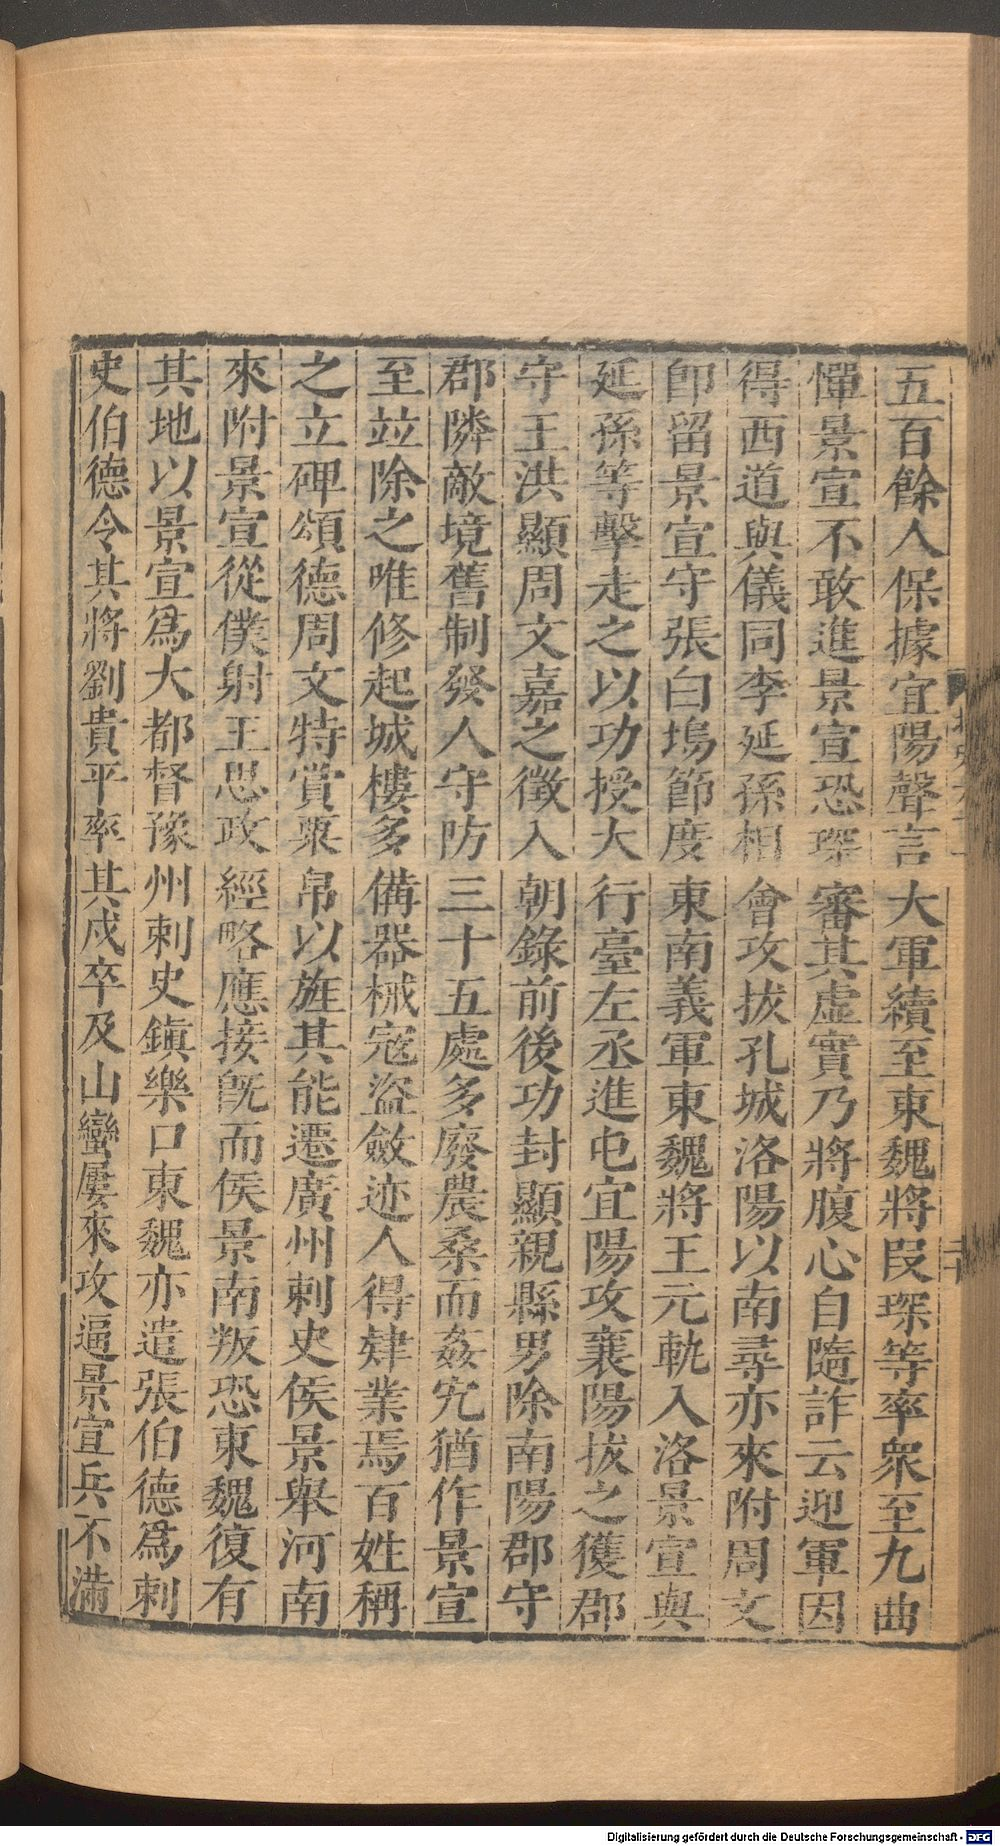 五百餘人保據宜陽聲言大軍續至東魏將段琛等率衆至九曲
憚景宣不敢進景宣恐琛審其虛實乃將腹心自隨詐云迎軍因
得西道與儀同李延孫相會攻拔孔城洛陽以南尋亦來附周文
卽留景宣守張白塢節度東南義軍東魏將王元軌入洛景宣與
延孫等擊走之以功授大行臺左丞進屯宜陽攻襄陽拔之獲郡
守王洪顯周文嘉之徵入朝錄前後功封顯親縣男除南陽郡守
郡隣敵境舊制發人守防三十五處多廢農桑而姦宄猶作景宣
至竝除之唯修起城樓多備器械寇盜斂迹人得肄業焉百姓稱
之立碑頌德周文特賞粟帛以旌其能遷廣州刺史侯景舉河南
來附景宣從僕射王思政經略應接旣而侯景南叛恐東魏復有
其地以景宣爲大都督豫州刺史鎮樂口東魏亦遣張伯德爲刺
史伯德令其將劉貴平率其戍卒及山蠻屢來攻逼景宣兵不滿
二十
Digitalisierung gefördert durch die Deutsche Forschungsgemeinschaft - DFG